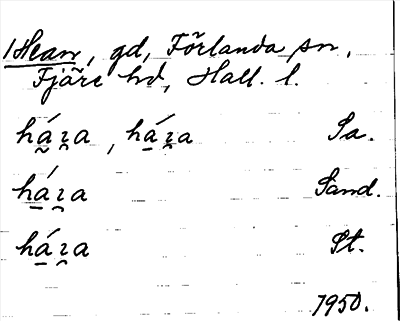 1 Hean, gd, Förlanda sn,
Fjäre hd, Hall. l.
há̰ɿ̯a, há̱ɿ̯a Sa.
há̱ɿ̯a Sand.
há̱ɿ̯a St.
1950.